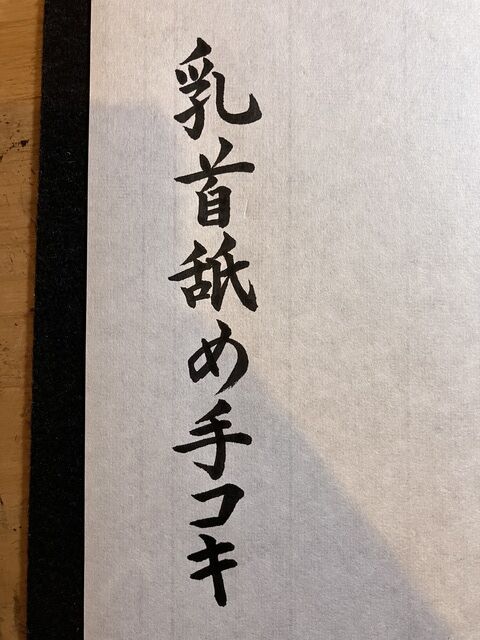 乳首舐め手コキ